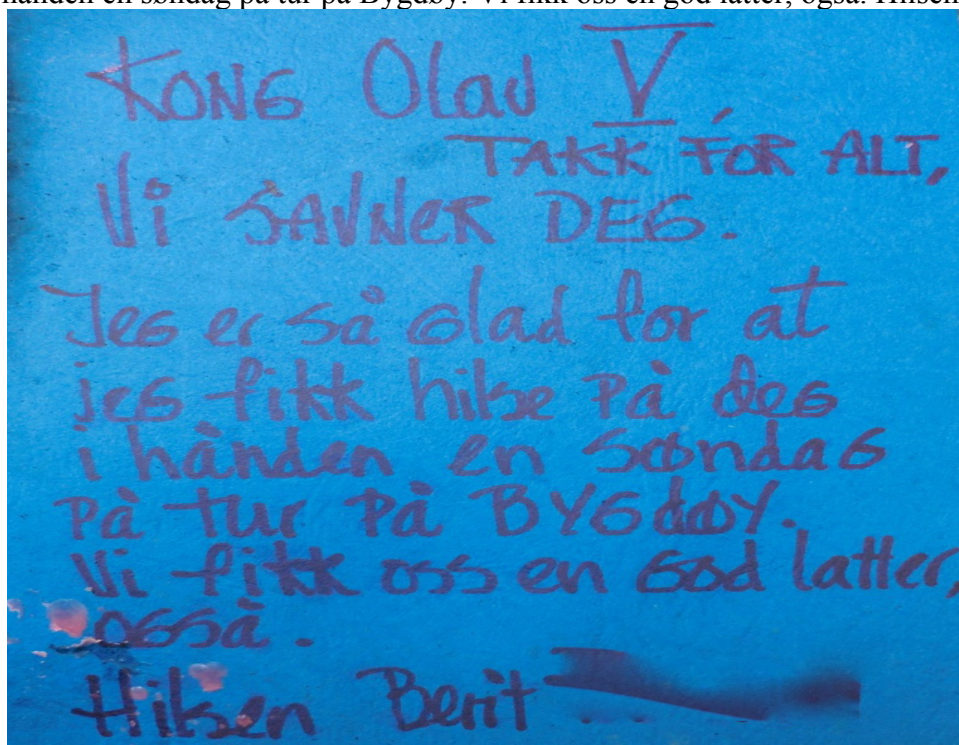 hånden en søndag på tur på Bygdøy. Vi fikk oss en god latter, også. Hilsen
KONG Olav V,
TAKK FOR ALT,
Vi SAVNER DEG.
Jeg er så glad for at
jeg fikk hilse på deg
i hånden en søndag
På tur På BYGdøY.
Vi fikk oss en god latter,
også.
Hilsen Berit